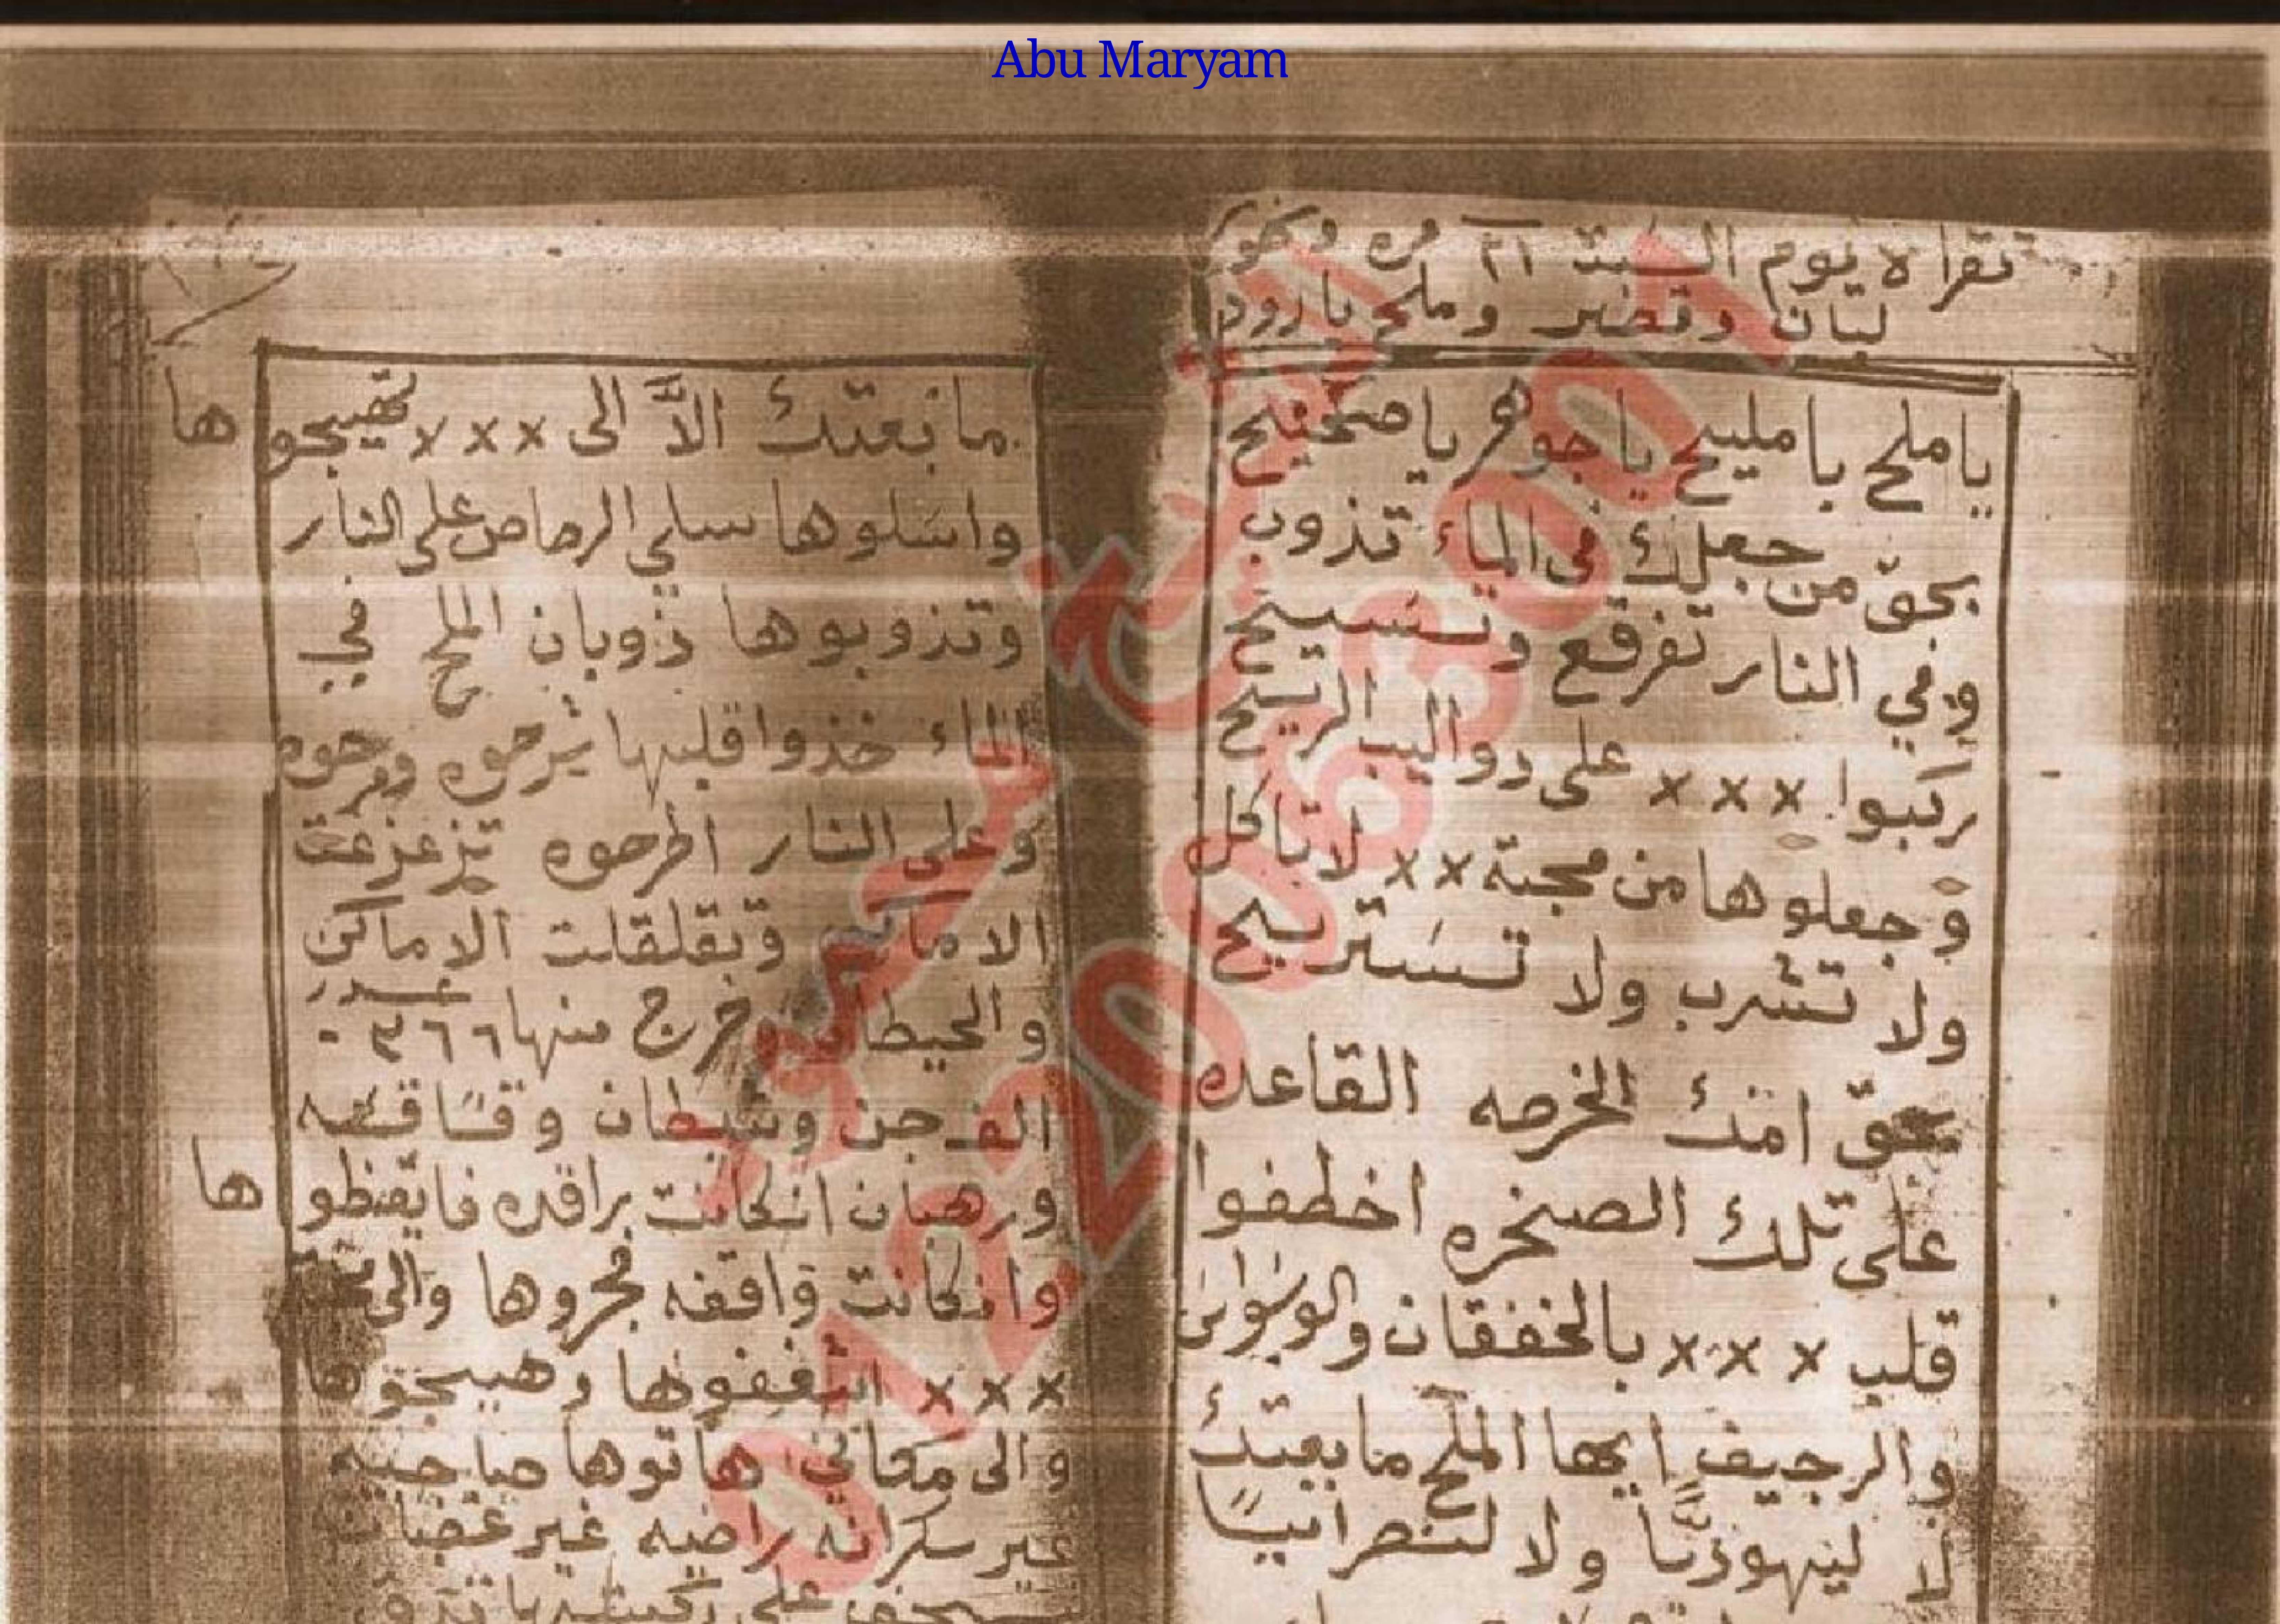 Abu Maryam
تقراه يوم السبت ٢١ مره وبخور
لبان وتضبر وملح بارود
ياملح يا مليح يا جوهر يا صحيح
بحق من جعلك في الماء تذوب
وفي النار تفرقع وتسيح
ركبوا x x x على دواليب الريح
وجعلوها من محبة x x لا تاكل
ولا تشرب ولا تستريح
بحق امك الخرصه القاعده
على تلك الصخره اخطفوا
قلب x x x بالخفقان والوسواس
والرجيف ايها الملح ما بعتك
لا ليهوديا ولا لنصرانيا
ما نبعتك الا الى x x x تهيجوها
واسلوها سلي الرصاص على النار
وتذوبوها ذوبان الملح في
الماء خذوا قلبها شرحوه ومرحوه
وعلى النار اطرحوه تزعزعت
الاماكن وتقلقلت الاماكن
والحيطان وخرج منها ٦٦
الف جن وشيطان وقساقسه
ورهبان انكانت راقده فايقظوها
وانكانت واقفه فجروها والى
x x x اشغفوها وهيجوها
والى مكاني هاتوها صاحيه
غير سكرانه راضيه غير غضبانه
على
0122086300